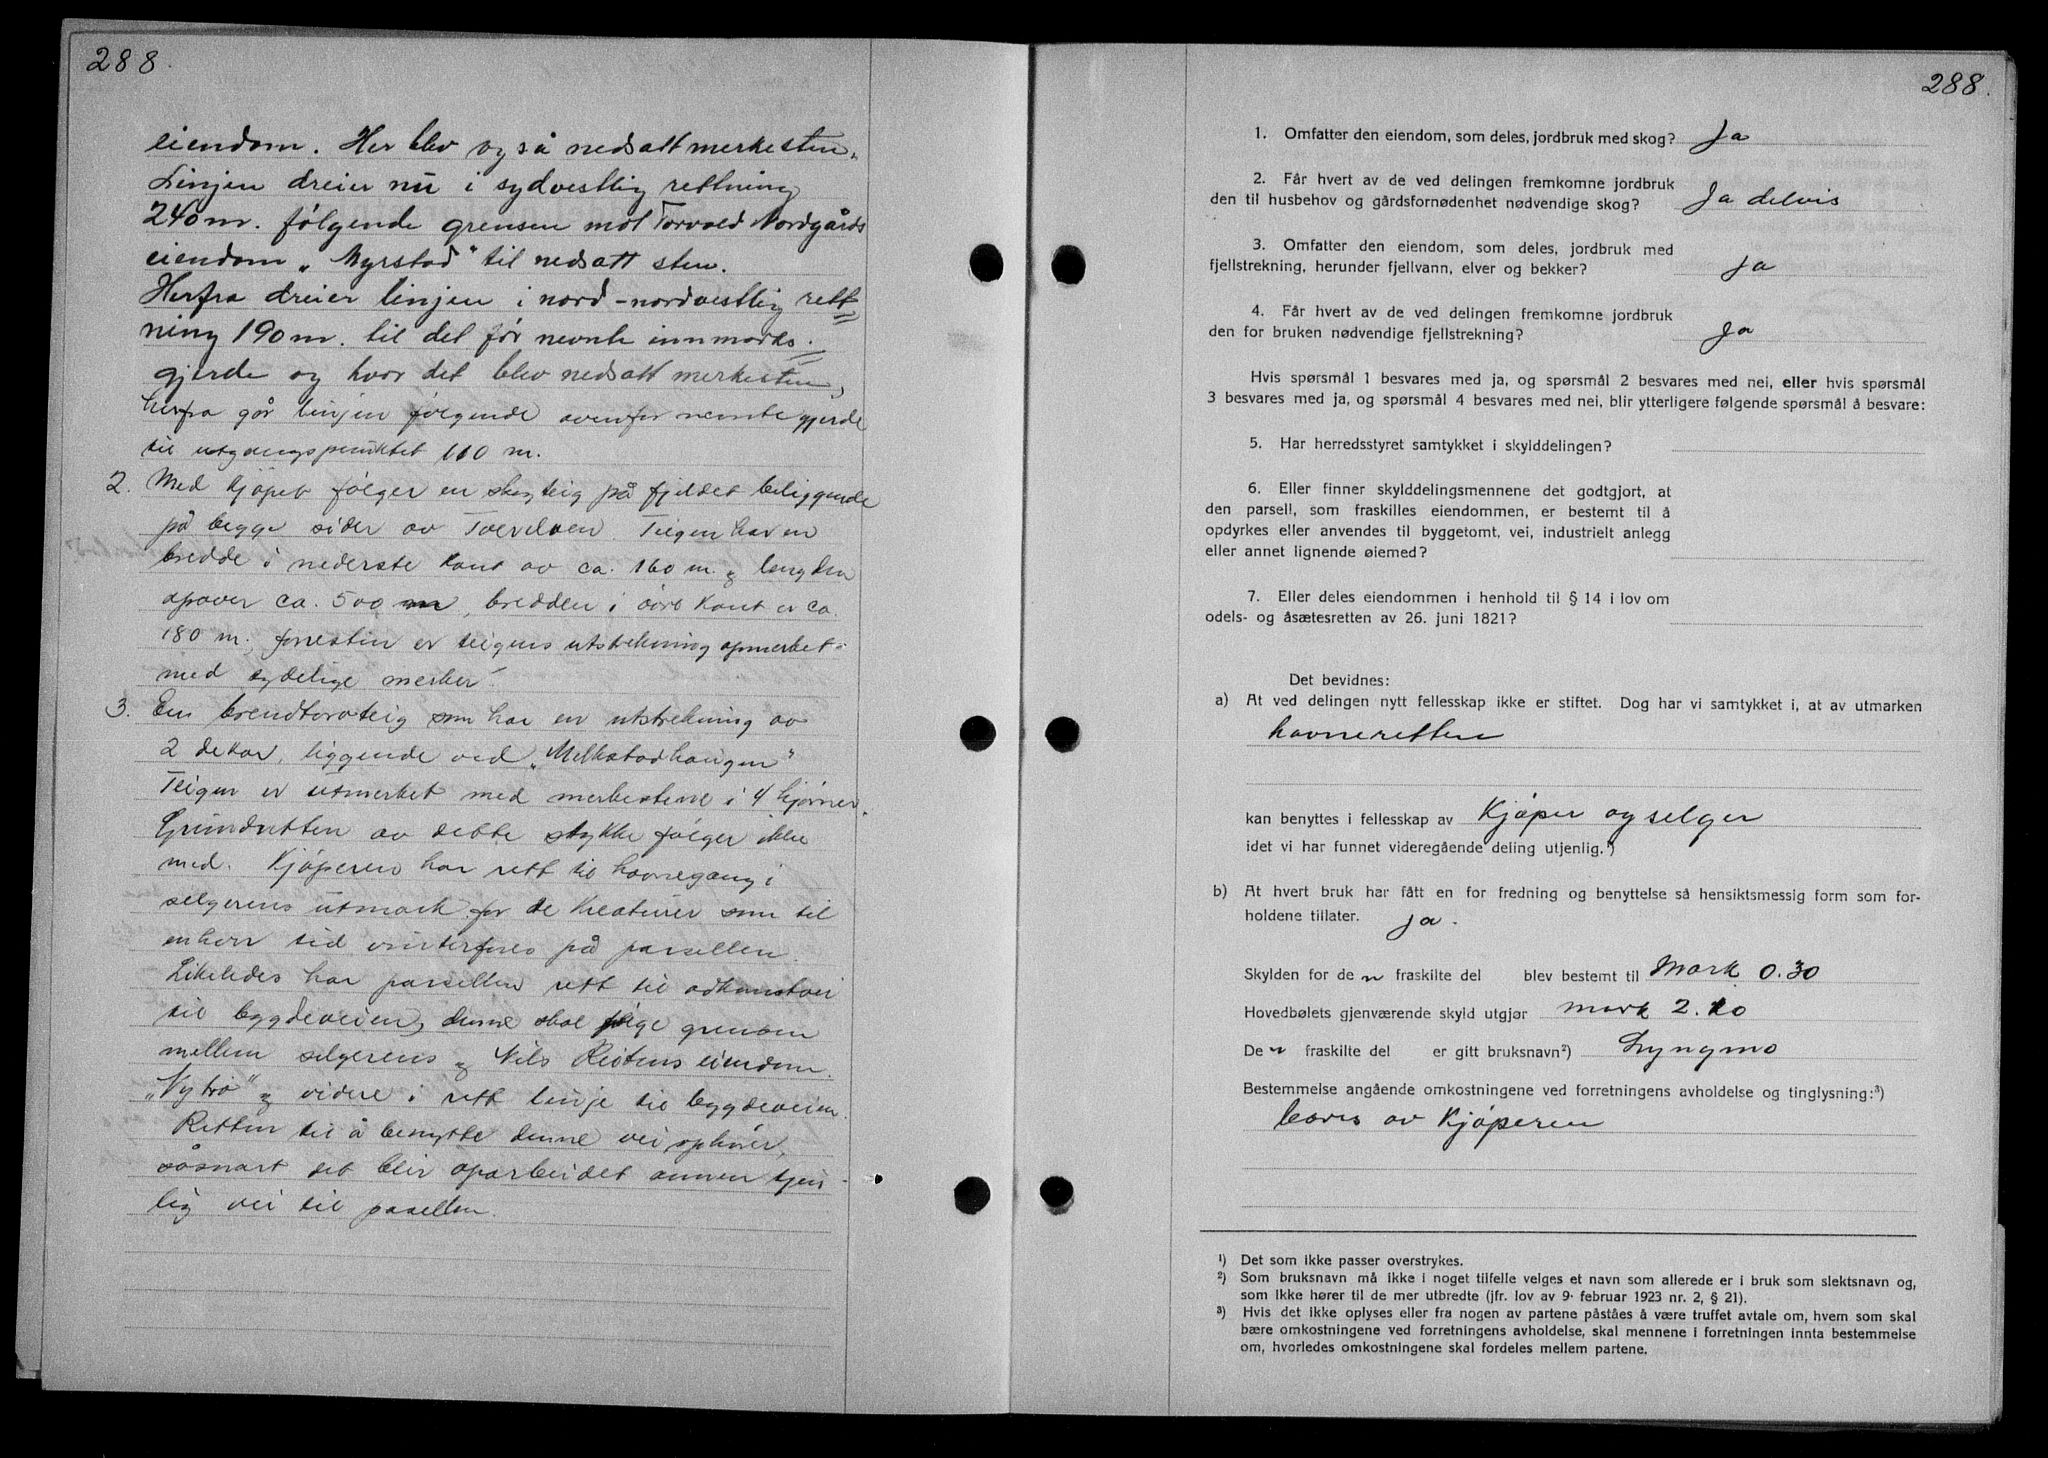 288.
eiendom. Her blev også nedsatt merkesten.
Linjen dreier nu i sydvestlig rettning
240 m. følgende grensen mot Torvald Nordgårds
eiendom „Myrstad" til nedsatt sten.
Herfra dreier linjen i nord-nordvestlig rett=
ning 190 m. til det før nevnte innmarks=
gjerde og hvor det blev nedsatt merkesten,
herfra går linjen følgende ovenfor nevnte gjerde
til utgangspunktet 110 m.
2. Med kjøpet følger en skogteig på fjeldet beliggende
på begge sider av Tverelven. Teigen har en
bredde i nederste kant av ca. 160 m. og lengden
opover ca. 500 m, bredden i øvre kant er ca.
180 m, forresten er teigens utstrekning opmerket
med tydelige merker.
3. En brendtorvteig som har en utstrekning av
2 dekar, liggende ved „Melkstadhaugen"
Teigen er utmerket med merkestene i 4 hjørner.
Grundretten av dette stykke følger ikke
med. Kjøperen har rett til havnegang i
selgerens utmark for de kreaturer som til
enhver tid vinterfores på parsellen.
Likeledes har parsellen rett til adkomstvei
til bygdeveien, denne skal følge grensen
mellem selgerens og Nils Reitens eiendom
„Nytrø" og videre i rett linje til bygdeveien.
Retten til å benytte denne vei ophører,
såsnart det blir oparbeidet annen tjen-
lig vei til pasellen.
288.
1. Omfatter den eiendom, som deles, jordbruk med skog? Ja
2. Får hvert av de ved delingen fremkomne jordbruk
den til husbehov og gårdsfornødenhet nødvendige skog? Ja delvis
3. Omfatter den eiendom, som deles, jordbruk med
fjellstrekning, herunder fjellvann, elver og bekker? Ja
4. Får hvert av de ved delingen fremkomne jordbruk
den for bruken nødvendige fjellstrekning? Ja
Hvis spørsmål 1 besvares med ja, og spørsmål 2 besvares med nei, eller hvis spørsmål
3 besvares med ja, og spørsmål 4 besvares med nei, blir ytterligere følgende spørsmål å besvare:
5. Har herredsstyret samtykket i skylddelingen?
6. Eller finner skylddelingsmennene det godtgjort, at
den parsell, som fraskilles eiendommen, er bestemt til å
opdyrkes eller anvendes til byggetomt, vei, industrielt anlegg
eller annet lignende øiemed?
7. Eller deles eiendommen i henhold til § 14 i lov om
odels- og åsætesretten av 26. juni 1821?
Det bevidnes:
a) At ved delingen nytt fellesskap ikke er stiftet. Dog har vi samtykket i, at av utmarken
havneretten
kan benyttes i fellesskap av Kjøper og selger
idet vi har funnet videregående deling utjenlig.¹)
b) At hvert bruk har fått en for fredning og benyttelse så hensiktsmessig form som for-
holdene tillater. Ja.
Skylden for de n fraskilte del blev bestemt til Mark 0.30
Hovedbølets gjenværende skyld utgjør mark 2.10
De n fraskilte del er gitt bruksnavn²) Lyngmo
Bestemmelse angående omkostningene ved forretningens avholdelse og tinglysning:³)
bæres av Kjøperen
¹) Det som ikke passer overstrykes.
²) Som bruksnavn må ikke i noget tilfelle velges et navn som allerede er i bruk som slektsnavn og,
som ikke hører til de mer utbredte (jfr. lov av 9. februar 1923 nr. 2, § 21).
³) Hvis det ikke oplyses eller fra nogen av partene påståes å være truffet avtale om, hvem som skal
bære omkostningene ved forretningens avholdelse, skal mennene i forretningen innta bestemmelse
om, hvorledes omkostningene skal fordeles mellem partene.